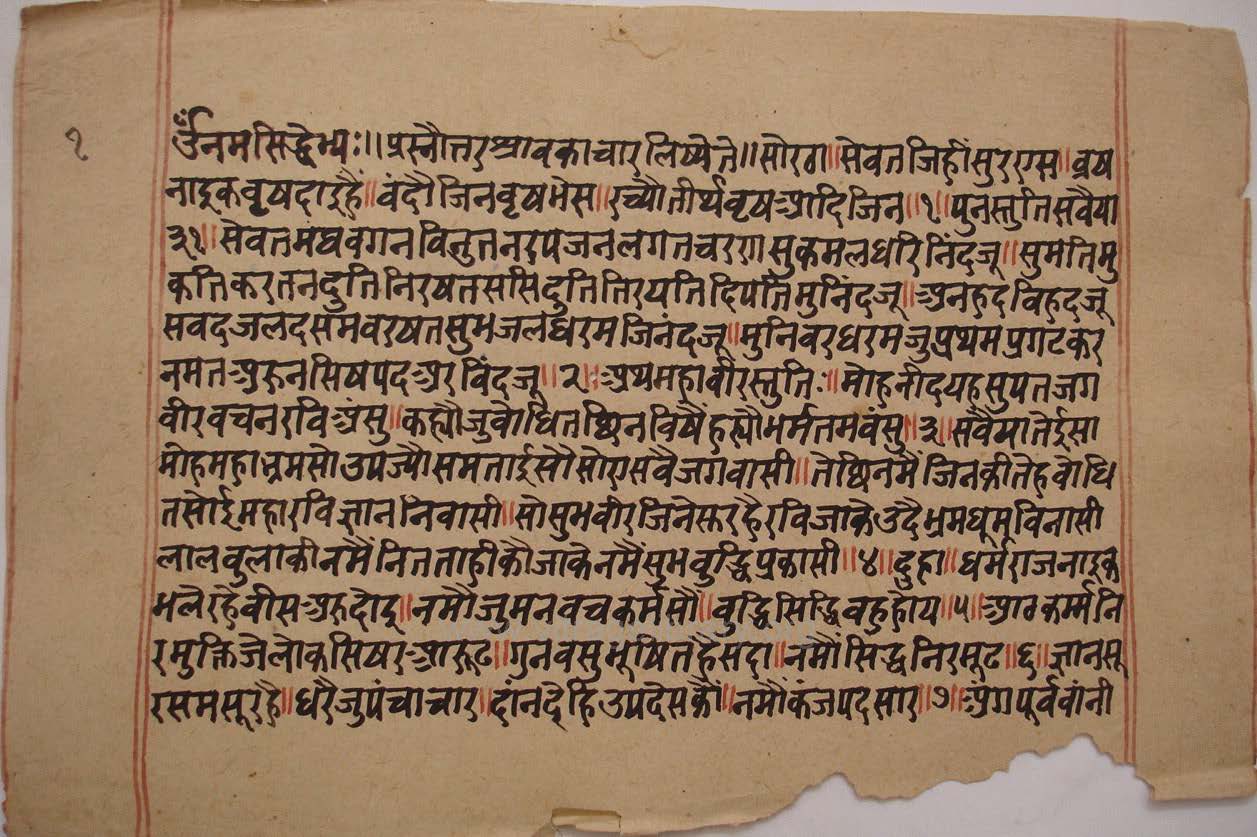 १
ॐनमसिद्धेभ्यः॥ प्रस्नौत्तरश्रावकाचार लिष्यते॥ सोरठा॥ सेवत जिहीं सुरराय॥ वृष
नाइक वृषदाइ है॥ वंदौ जिन वृषभेस॥ रच्यौ तीर्थ वृष आदि जिन॥ १॥ पुनस्तुति सवैया
३१॥ सेवत मघवगन विनुत नरपजन लगत चरण सुकमल धरि निंदजू॥ सुमति मु
कति करतन दुति निरषत ससि दुति तिरयति दिपति मुनिंदजू॥ अनहद विहद जू
सवद जलद सम वरषत सुभ जल धरम जिनंदजू॥ मुनिवर धरम जु प्रथम प्रगट कर
नमत अरुन सिष पद अरविंदजू॥ २॥ अथ महावीर स्तुति॥ मोहनीद यह सुपत जग
वीर वचन रवि अंसु॥ कह्यौ जु वोधित छिन विषै हस्यौ भर्म तम वंसु॥ ३॥ सवैया तेईसा
मोह महा भ्रम सो उपज्यौ समताई सौ सोए सवै जगवासी॥ ते छिनमै जिन कीतेह वोधि
त सोई महा रवि ज्ञान निवासी॥ सो सुभ वीर जिनेस्वर है रवि जाके उदै भ्रम धूम विनासी
लाल वुलाकी नमै नित ताही कौ जाके नमै सुभ वुद्धि प्रकासी॥ ४॥ दुहा॥ धर्मराज नाइक
भले रहै वीस अरु दोइ॥ नमौ जु मन वच कर्म सौ॥ वुद्धि सिद्धि वहु होय॥ ५॥ आठ कर्म्म नि
र मुक्ति जे लोक सिषर आरूढ॥ गुन वसु भूषित है सदा॥ नमौं सिद्ध निरमूढ॥ ६॥ ज्ञान सू
रसम सूर है॥ धरै जु पंचाचार॥ दांन देहि उपदेस कौं॥ नमौं कंज पद सार॥ ७॥ अंग पूर्व वांनी